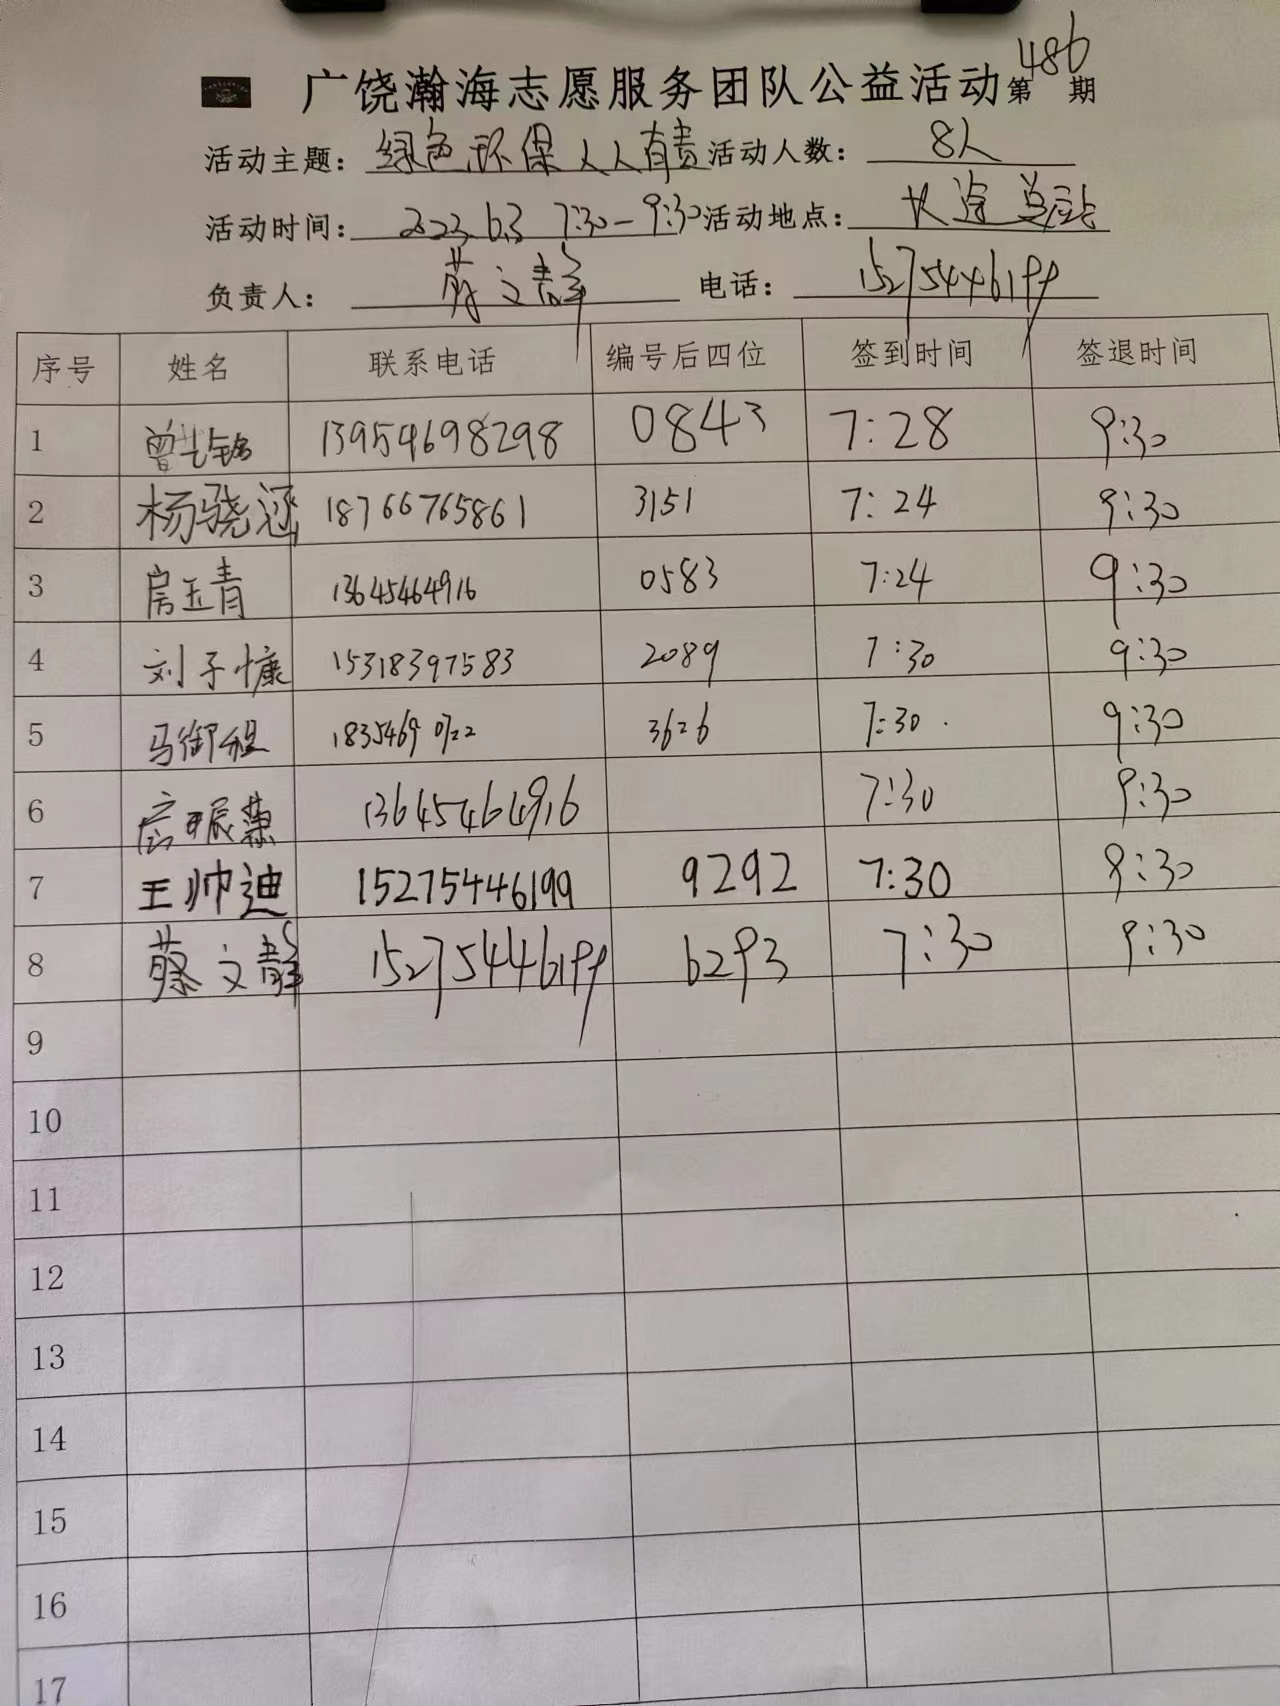 广饶瀚海志愿服务团队公益活动第486期
活动主题：绿色环保人人有责 活动人数：8人
活动时间：2023.6.3 7:30-9:30 活动地点：长途总站
负责人：蔡文静 电话：15275446199
序号 姓名 联系电话 编号后四位 签到时间 签退时间
1 13954698298 0843 7:28 9:30
2 杨骁涵 18766765861 3151 7:24 9:30
3 房玉青 13645464916 0583 7:24 9:30
4 刘子慷 15318397583 2089 7:30 9:30
5 马御程 18354690722 3626 7:30 9:30
6 13645464916 7:30 9:30
7 王帅迪 15275446199 9292 7:30 9:30
8 蔡文静 15275446199 6293 7:30 9:30
9
10
11
12
13
14
15
16
17